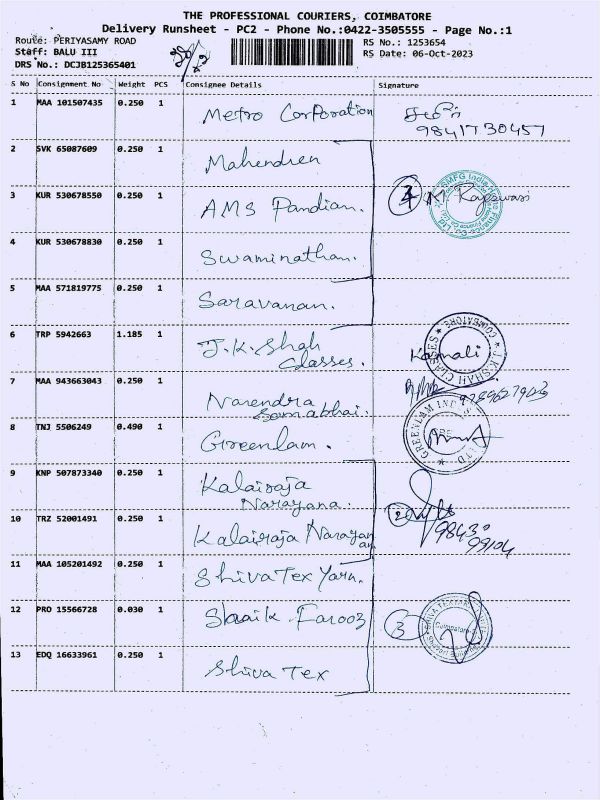 THE PROFESSIONAL COURIERS, COIMBATORE
Delivery Runsheet - PC2 - Phone No.:0422-3505555 - Page No.:1
Route: PERIYASAMY ROAD
RS No.: 1253654
Staff: BALU III
RS Date: 06-Oct-2023
DRS No.: DCJB125365401
S No Consignment No Weight PCS Consignee Details Signature
1 MAA 101507435 0.250 1 Metro Corporation
9841730457
2 SVK 65087609 0.250 1 Mahendren
3 KUR 530678550 0.250 1 AMS Pandian. 4 M. Rajeswari
4 KUR 530678830 0.250 1 Swaminathan.
5 MAA 571819775 0.250 1 Saravanan.
6 TRP 5942663 1.185 1 J.K. Shah Kamali
Classes.
J.K SHAH CLASSES COIMBATORE
7 MAA 943663043 0.250 1 Narendra
Somabhai.
8 TNJ 5506249 0.490 1 Greenlam.
GREENLAM LTD
9 KNP 507873340 0.250 1 Kalairaja
Narayana.
10 TRZ 52001491 0.250 1 Kalairaja Narayan 2
an.
98430
99104
11 MAA 105201492 0.250 1 Shiva Tex Yarn.
12 PRO 15566728 0.030 1 Shaik Farooz 3
SHIVA TEXYARN LIMITED
Coimbatore
13 EDQ 16633961 0.250 1 Shiva Tex